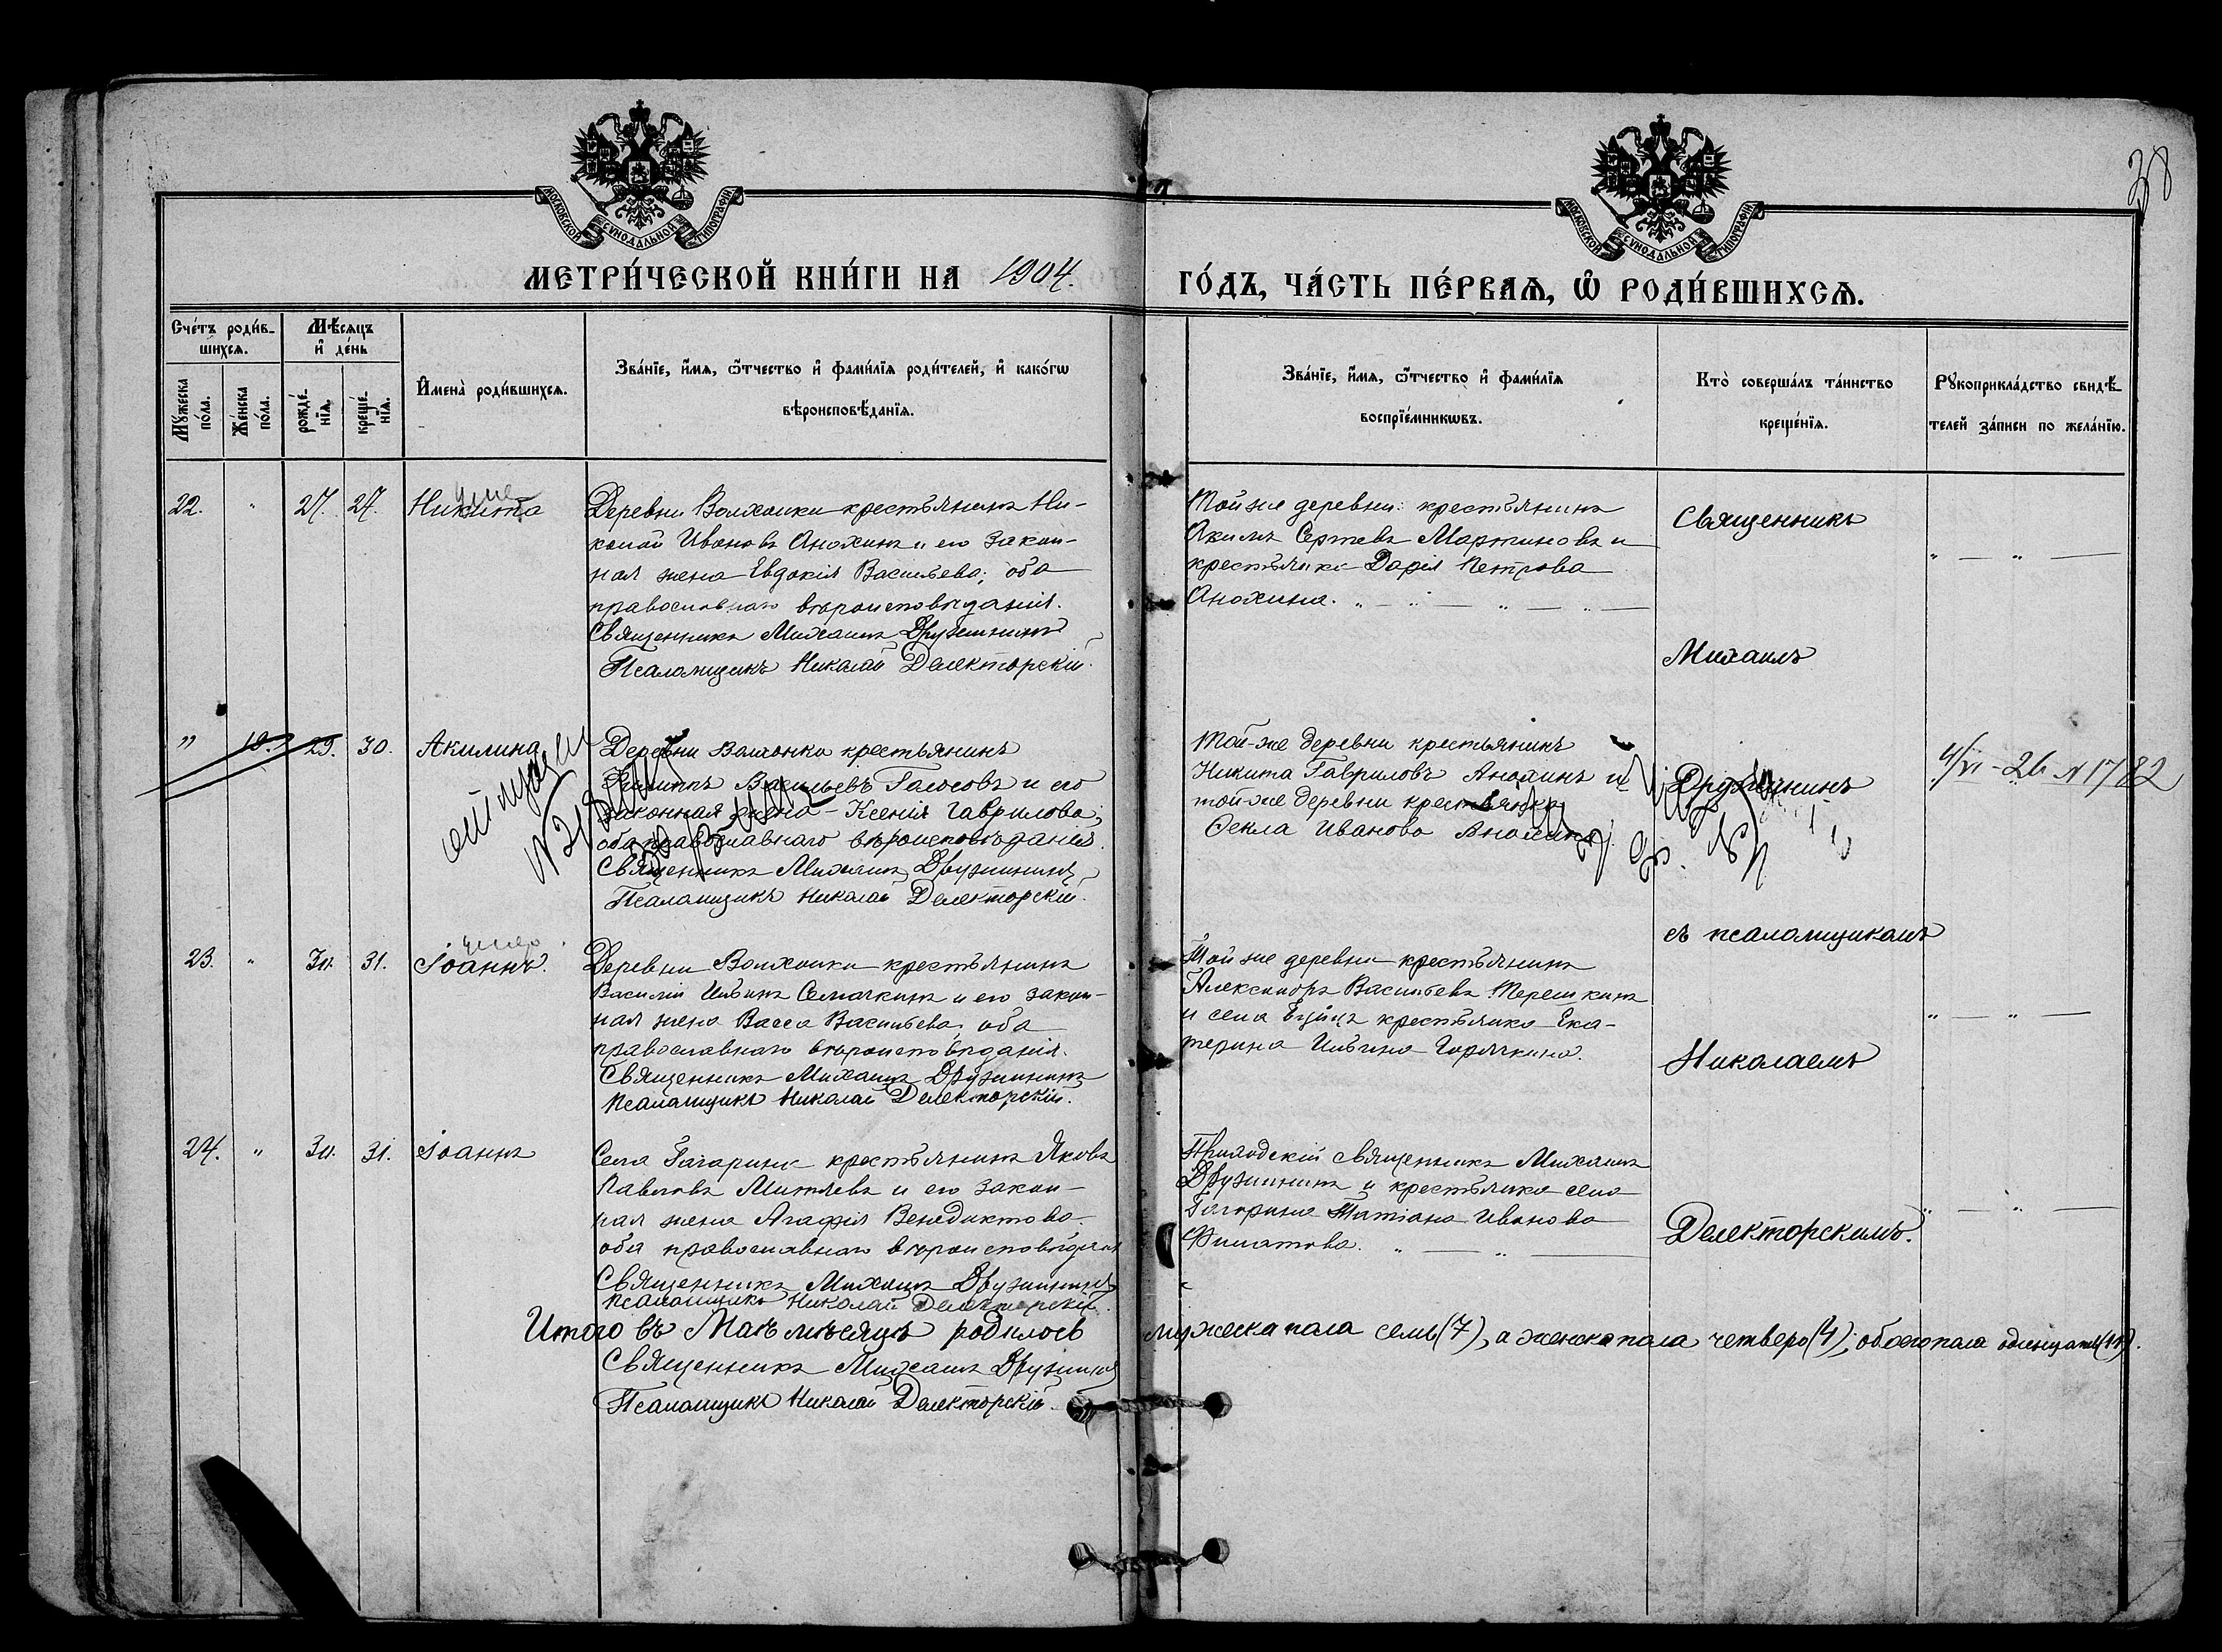 38
МОСКОВСКОЙ СѴНОДАЛЬНОЙ ТИПОГРАФІИ
МОСКОВСКОЙ СѴНОДАЛЬНОЙ ТИПОГРАФІИ
МЕТРИ́ЧЕСКОЙ КНИ́ГИ НА 1904. ГО́ДЪ, ЧА́СТЬ ПЕ́РВАѦ, Ѡ҆ РОДИ́ВШИХСѦ.
Сче́тъ роди́в-
шихсѧ.
Мѣ́сяцъ
и҆ де́нь
Мꙋ́жеска
по́ла.
Же́нска
по́ла.
рожде́-
нїѧ.
креще́-
нїѧ.
И҆мена̀ роди́вшихсѧ.
Зва́нїе, и҆́мѧ, ѻ҆́тчество и҆ фами́лїѧ роди́телей, и҆ како́гѡ
вѣроисповѣ́данїѧ.
Зва́нїе, и҆́мѧ, ѻ҆́тчество и҆ фами́лїѧ
воспрїе́мникѡвъ.
Кто̀ соверша́лъ та́инство
креще́нїѧ.
Рꙋкоприкла́дство свидѣ́-
телей за́писи по жела́нїю.
22. " 27. 27. Никита
Деревни Волхонки крестьянинъ Ни-
колай Ивановъ Анохинъ и его закон-
ная жена Евдокія Васильева; оба
православнаго вѣроисповѣданія.
Священникъ Михаилъ Дружининъ
Псаломщикъ Николай Делекторскій.
Той же деревни крестьянинъ
Акимъ Сергѣевъ Мартиновъ и
крестьянка Дарія Петрова
Анохина. " — " — " — " —
Священникъ
" — " —
Михаилъ
" 10. 29. 30. Акилина
Деревни Волхонки крестьянинъ
Филиппъ Васильевъ Гласовъ и его
законная жена - Ксенія Гаврилова;
оба православнаго вѣроисповѣданія.
Священникъ Михаилъ Дружининъ
Псаломщикъ Николай Делекторскій.
Той-же деревни крестьянинъ
Никита Гавриловъ Анохинъ и
той-же деревни крестьянка
Ѳекла Иванова Анохина.
Дружининъ
4/VI - 26 N 1782
съ псаломщикомъ
23. " 30. 31. Іоаннъ.
умер
Деревни Волхонки крестьянинъ
Василій Ильинъ Семочкинъ и его закон-
ная жена Васса Васильева, оба
православнаго вѣроисповѣданія.
Священникъ Михаилъ Дружининъ
Псаломщикъ Николай Делекторскій.
Той же деревни крестьянинъ
Александръ Васильевъ Терешкинъ
и села крестьянка Ека-
терина Ильина Горячкина.
" — " —
Николаемъ
24. " 30. 31. Іоаннъ
Села Гагарина крестьянинъ Яковъ
Павловъ Митяевъ и его закон-
ная жена Агафія Венедиктова.
оба православнаго вѣроисповѣданія
Священникъ Михаилъ Дружининъ
Псаломщикъ Николай Делекторскій.
Приходскій священникъ Михаилъ
Дружининъ и крестьянка села
Гагарина Татіана Иванова
Филатова. " — " —
Делекторскимъ.
" — " —
Итого въ Маѣ мѣсяцѣ родилось мужеска пола семь (7), а женска пола четверо (4); обоего пола одинцать (11).
Священникъ Михаилъ Дружининъ
Псаломщикъ Николай Делекторскій.